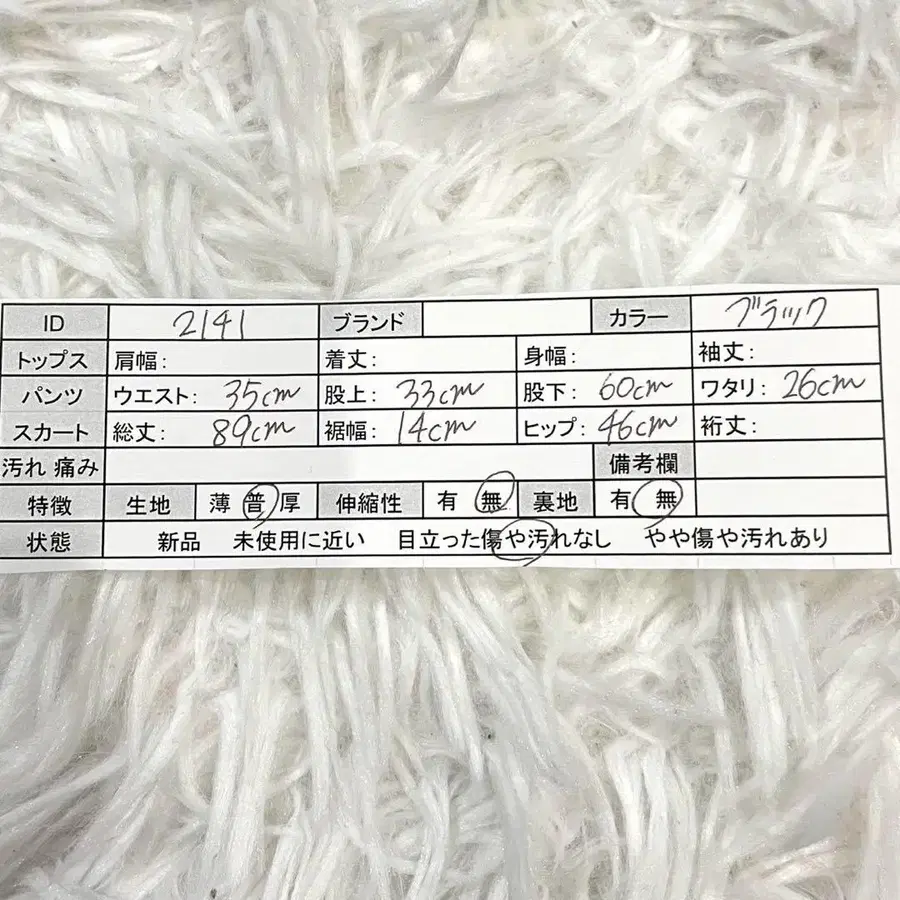 ID 2141 ブランド カラー ブラック
トップス 肩幅: 着丈: 身幅: 袖丈:
パンツ ウエスト: 35cm 股上: 33cm 股下: 60cm ワタリ: 26cm
スカート 総丈: 89cm 裾幅: 14cm ヒップ: 46cm 裄丈:
汚れ 痛み 備考欄
特徴 生地 薄 普 厚 伸縮性 有 無 裏地 有 無
状態 新品 未使用に近い 目立った傷や汚れなし やや傷や汚れあり